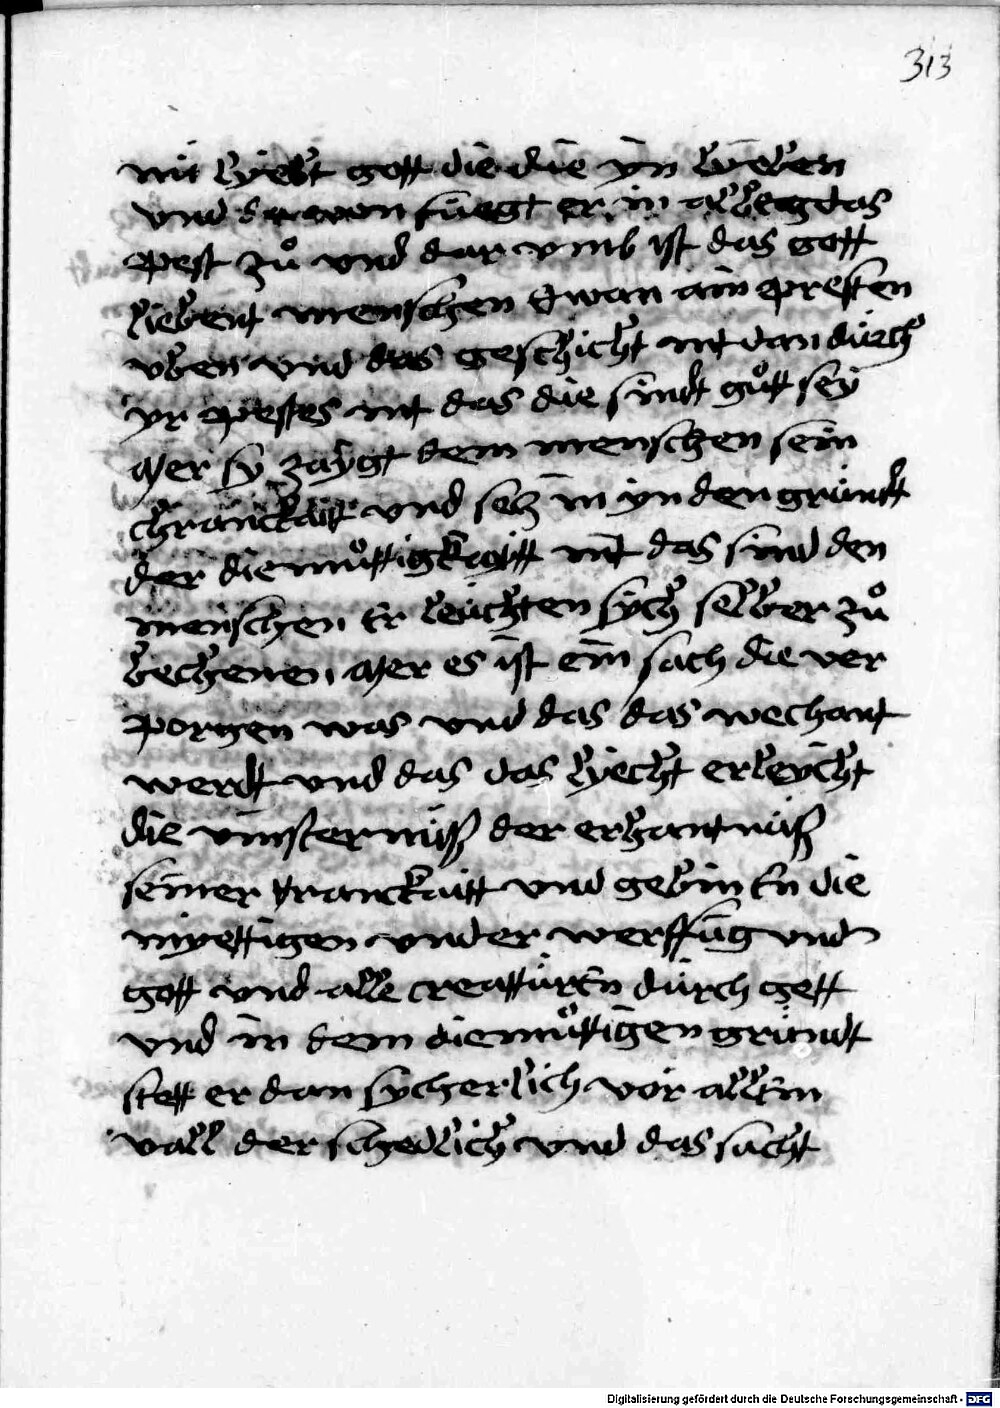 313
nit lyebt gott die die yn lyeben
vnd dar von füegt er in allen das
pest zů vnd dar vmb ist das gott
liebent menschen Etwan ain presten
vben vnd das geschicht nit dan dürch
yr pestes nit das die sündt gůtt sey
Aber sy zaygt dem menschen sein
chranckaitt vnd secz in yn den gründt
der diemůttigkaitt nit das sünd den
menschen Er leüchten sych selber zů
bechenen Aber es ist ein sach die ver
porgen was vnd das das wechant
werdt vnd das das lyecht erleycht
die vinsternüß der erkantnüß
seiner kranckaitt vnd gebin En die
nyettigen vnder werffüg vnd
gott vnd alle creattüren dürch gott
vnd in dem diemůttigen gründt
stett er dan sycherlich vor allem
vall der schedlich vnd das sücht
Digitalisierung gefördert durch die Deutsche Forschungsgemeinschaft - DFG